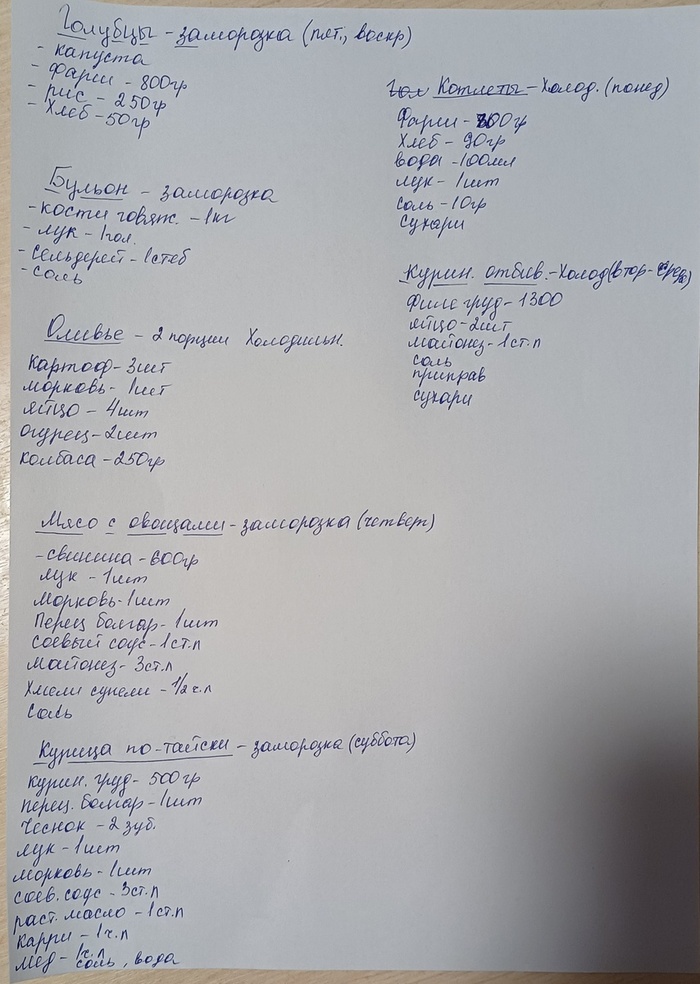 Голубцы - заморозка (пят., воскр)
- капуста
- Фарш - 800гр
- рис - 250гр
- Хлеб - 50гр
Бульон - заморозка
- кости говяж. - 1кг
- лук - 1гол.
- Сельдерей - 1стеб
- Соль
Оливье - 2 порции Холодильн.
Картоф - 3шт
морковь - 1шт
яйцо - 4шт
огурец - 2шт
колбаса - 250гр
Мясо с овощами - заморозка (четверг)
- свинина - 600гр
лук - 1шт
морковь - 1шт
Перец болгар - 1шт
Соевый соус - 1ст.л
майонез - 3ст.л
Хмели сунели - 1/2 ч.л
Соль
Курица по-тайски - заморозка (суббота)
курин. груд - 500гр
перец. болгар - 1шт
Чеснок - 2 зуб.
лук - 1шт
морковь - 1шт
соев. соус - 3ст.л
раст. масло - 1ст.л
Карри - 1ч.л
мёд - 1ч.л
соль, вода
Гол Котлеты - Холод. (понед)
Фарш - 700гр
Хлеб - 90гр
вода - 100мл
лук - 1шт
соль - 10гр
Сухари
Курин. отбив. - Холод (втор - среда)
Филе груд - 1300
яйцо - 2шт
майонез - 1ст.л
соль
приправ
сухари